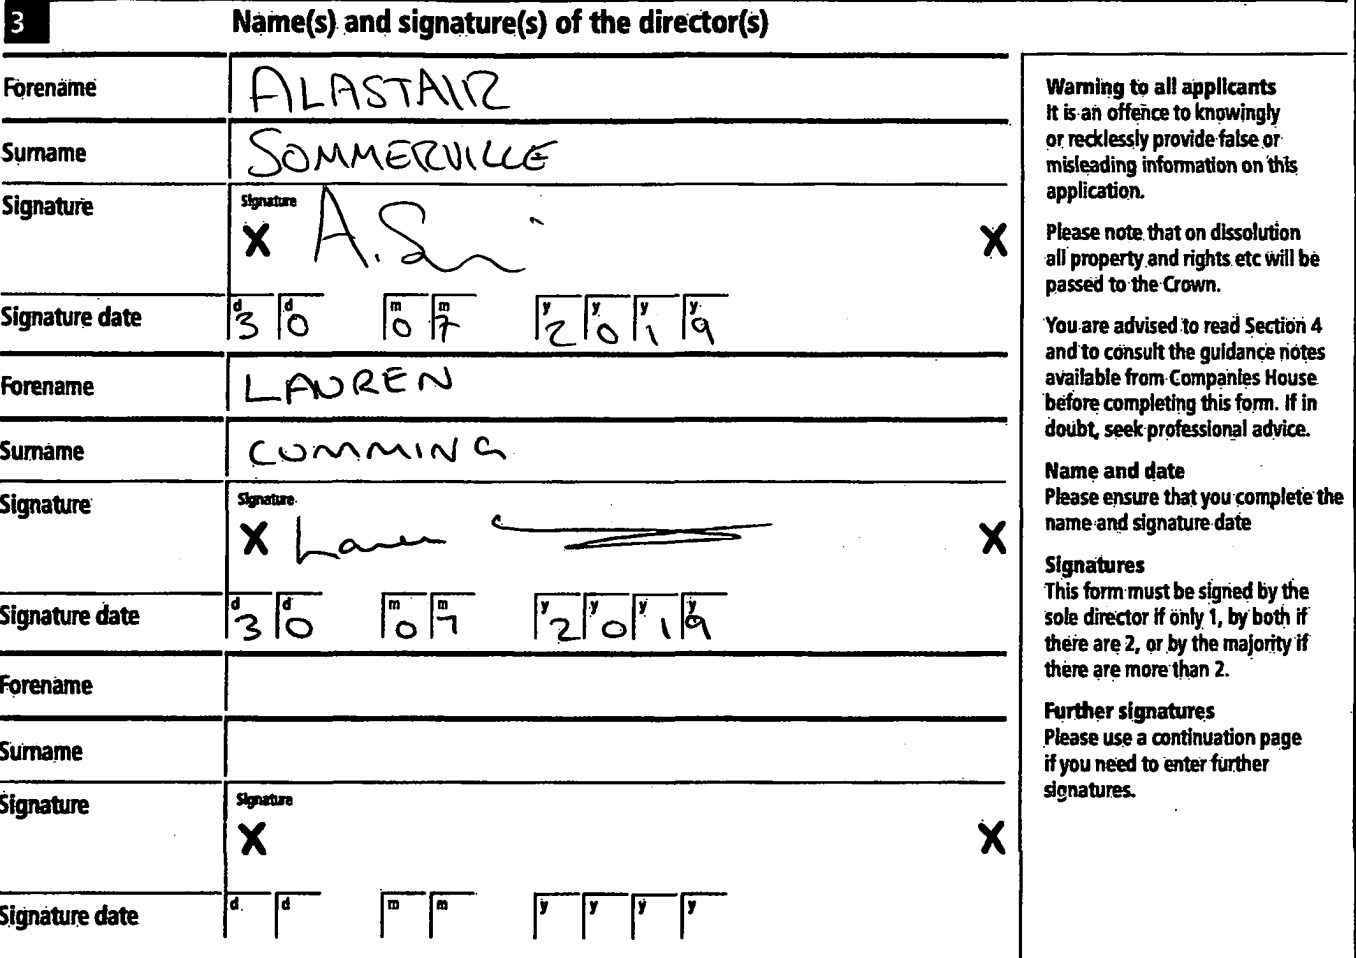 3 Name(s) and signature(s) of the director(s)
Forename ALASTAIR
Surname SOMMERVILLE
Signature Signature X A. S X
Signature date d3 d0 m0 m7 y2 y0 y1 y9
Forename LAUREN
Surname CUMMING
Signature Signature X Lauren X
Signature date d3 d0 m0 m7 y2 y0 y1 y9
Forename
Surname
Signature Signature X X
Signature date d d m m y y y y
Warning to all applicants
It is an offence to knowingly
or recklessly provide false or
misleading information on this
application.
Please note that on dissolution
all property and rights etc will be
passed to the Crown.
You are advised to read Section 4
and to consult the guidance notes
available from Companies House
before completing this form. If in
doubt, seek professional advice.
Name and date
Please ensure that you complete the
name and signature date
Signatures
This form must be signed by the
sole director if only 1, by both if
there are 2, or by the majority if
there are more than 2.
Further signatures
Please use a continuation page
if you need to enter further
signatures.